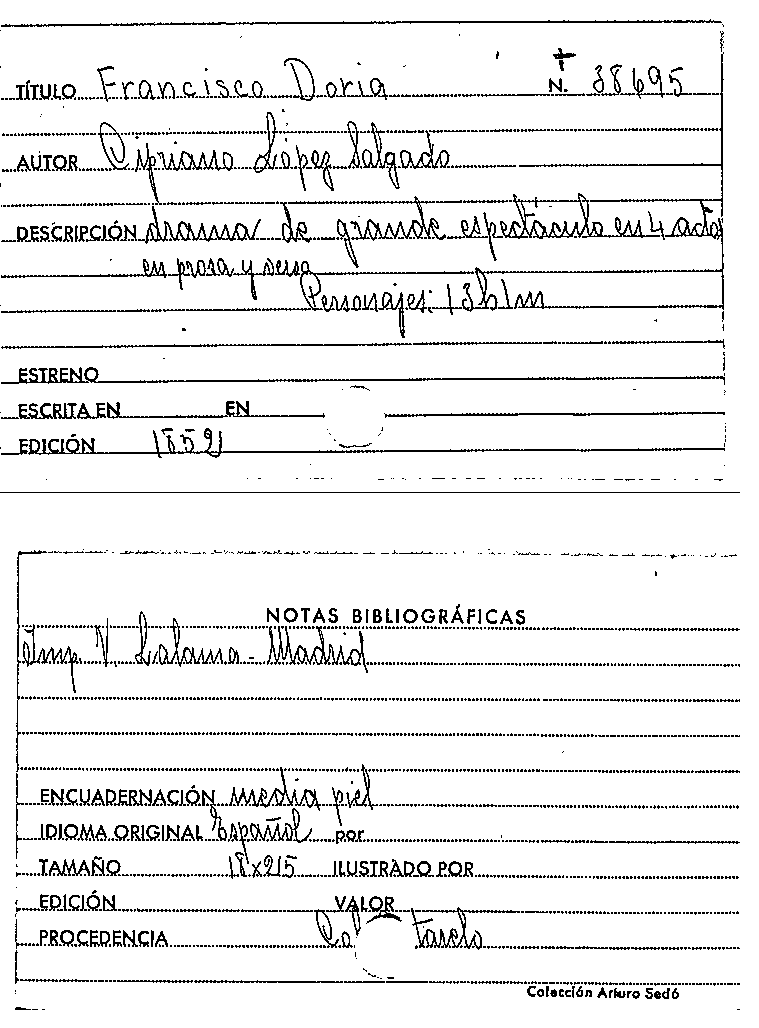 TÍTULO Francisco Doria N. 38695
AUTOR Cipriano López Salgado
DESCRIPCIÓN drama de grande espectáculo en 4 actos
en prosa y verso
Personajes: 13h 1m
ESTRENO
ESCRITA EN EN
EDICIÓN 1852
NOTAS BIBLIOGRÁFICAS
Imp. V. Lalama - Madrid
ENCUADERNACIÓN media piel
IDIOMA ORIGINAL Español por
TAMAÑO 18x215 ILUSTRADO POR
EDICIÓN VALOR
PROCEDENCIA
Colección Arturo Sedó